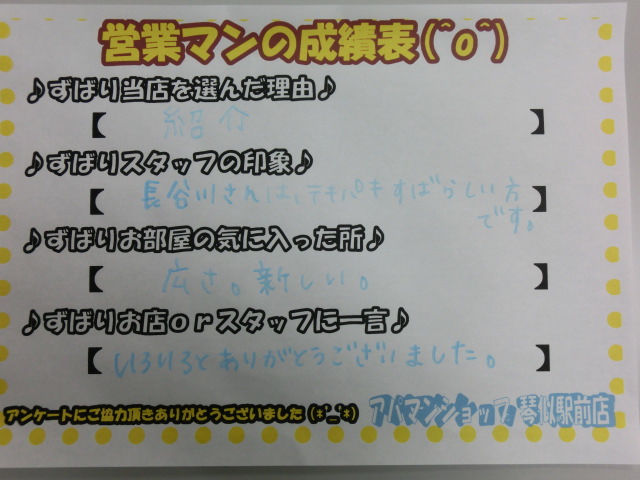 営業マンの成績表(^o^)
♪ずばり当店を選んだ理由♪
【 紹介 】
♪ずばりスタッフの印象♪
【 長谷川さんは、テキパキすばらしい方 】
です。
♪ずばりお部屋の気に入った所♪
【 広さ。新しい。 】
♪ずばりお店orスタッフに一言♪
【 いろいろとありがとうございました。 】
アンケートにご協力頂きありがとうございました(*^_^*)
アパマンショップ琴似駅前店